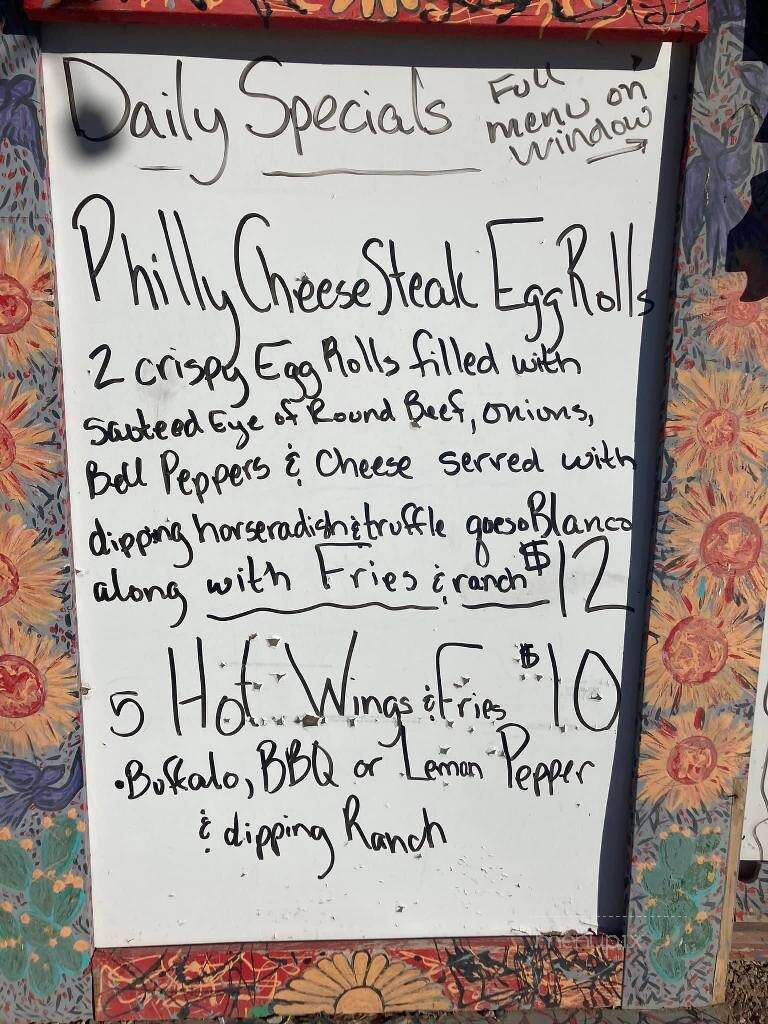 Daily Specials
Full
menu on
window
Philly CheeseSteak Egg Rolls
2 crispy Egg Rolls filled with
Sauteed Eye of Round Beef, onions,
Bell Peppers & Cheese served with
dipping horseradish & truffle quesoBlanco
along with Fries & ranch $12
5 Hot Wings & Fries $10
•Buffalo, BBQ or Lemon Pepper
& dipping Ranch
menupix